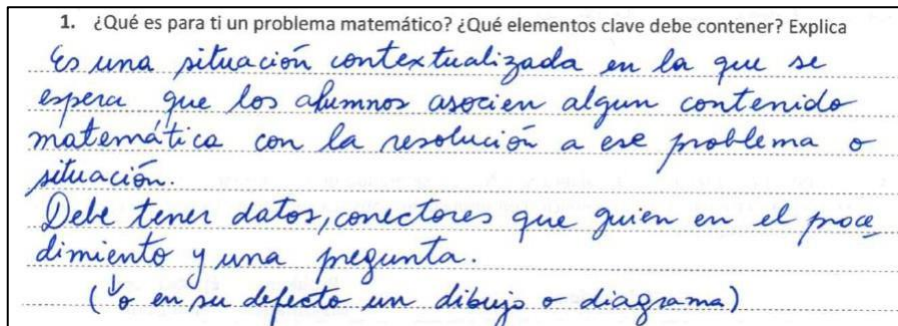 1. ¿Qué es para ti un problema matemático? ¿Qué elementos clave debe contener? Explica
Es una situación contextualizada en la que se
espera que los alumnos asocien algun contenido
matemática con la resolución a ese problema o
situación.
Debe tener datos, conectores que guien en el proce
dimiento y una pregunta.
(↓o en su defecto un dibujo o diagrama)